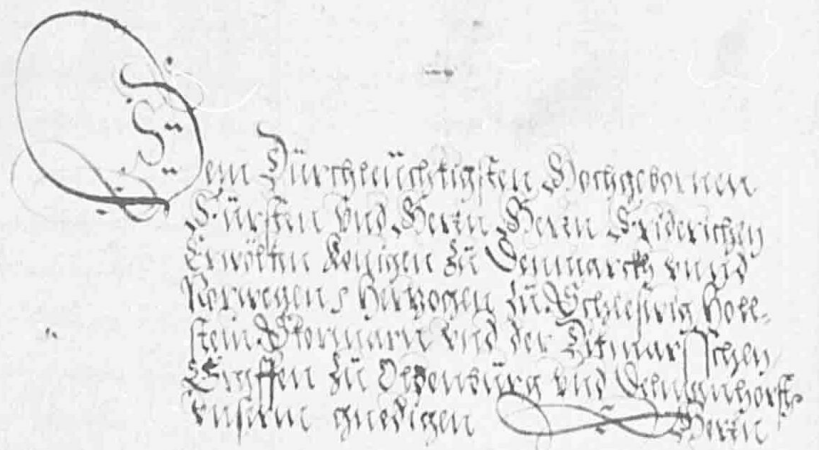 Dem Dürchleüchtigsten Hochgebornen
Fürsten vnd Herrn Herrn Friderichen
Erwölten Konigen zü Dennmarckh vnnd
Norwegen, Hertzogen zü Schleswig Holl-
stein Stormarn vnd der Ditmarsschen
Graffen zü Oldenbürg vnd Delmenhorsth
vnserm gnedigen Herrn